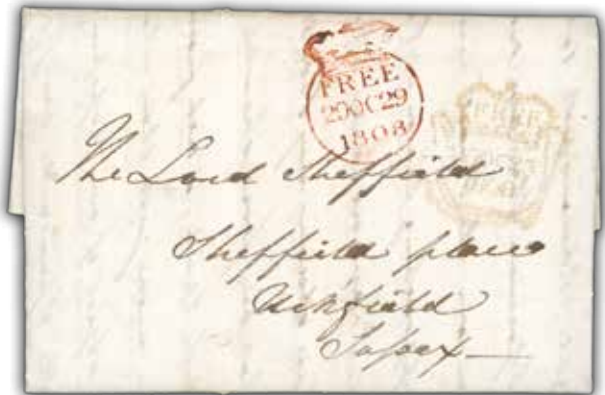 FREE
29OC29
1808
FREE
The Lord Sheffield
Sheffield place
Uckfield
Sussex